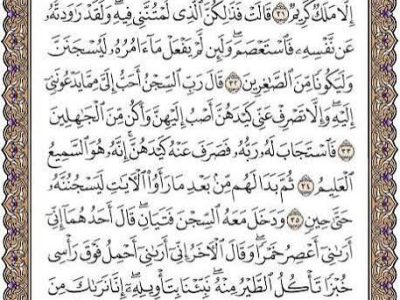 إِلَّا مَلَكٌ كَرِيمٌ ٣١ قَالَتْ فَذَٰلِكُنَّ ٱلَّذِى لُمْتُنَّنِى فِيهِ ۖ وَلَقَدْ رَٰوَدتُّهُۥ
عَن نَّفْسِهِۦ فَٱسْتَعْصَمَ ۖ وَلَئِن لَّمْ يَفْعَلْ مَآ ءَامُرُهُۥ لَيُسْجَنَنَّ
وَلَيَكُونًا مِّنَ ٱلصَّٰغِرِينَ ٣٢ قَالَ رَبِّ ٱلسِّجْنُ أَحَبُّ إِلَىَّ مِمَّا يَدْعُونَنِىٓ
إِلَيْهِ ۖ وَإِلَّا تَصْرِفْ عَنِّى كَيْدَهُنَّ أَصْبُ إِلَيْهِنَّ وَأَكُن مِّنَ ٱلْجَٰهِلِينَ
٣٣ فَٱسْتَجَابَ لَهُۥ رَبُّهُۥ فَصَرَفَ عَنْهُ كَيْدَهُنَّ ۚ إِنَّهُۥ هُوَ ٱلسَّمِيعُ
ٱلْعَلِيمُ ٣٤ ثُمَّ بَدَا لَهُم مِّنۢ بَعْدِ مَا رَأَوُا۟ ٱلْءَايَٰتِ لَيَسْجُنُنَّهُۥ
حَتَّىٰ حِينٍ ٣٥ وَدَخَلَ مَعَهُ ٱلسِّجْنَ فَتَيَانِ ۖ قَالَ أَحَدُهُمَآ إِنِّىٓ
أَرَىٰنِىٓ أَعْصِرُ خَمْرًا ۖ وَقَالَ ٱلْءَاخَرُ إِنِّىٓ أَرَىٰنِىٓ أَحْمِلُ فَوْقَ رَأْسِى
خُبْزًا تَأْكُلُ ٱلطَّيْرُ مِنْهُ ۖ نَبِّئْنَا بِتَأْوِيلِهِۦٓ ۖ إِنَّا نَرَىٰكَ مِنَ